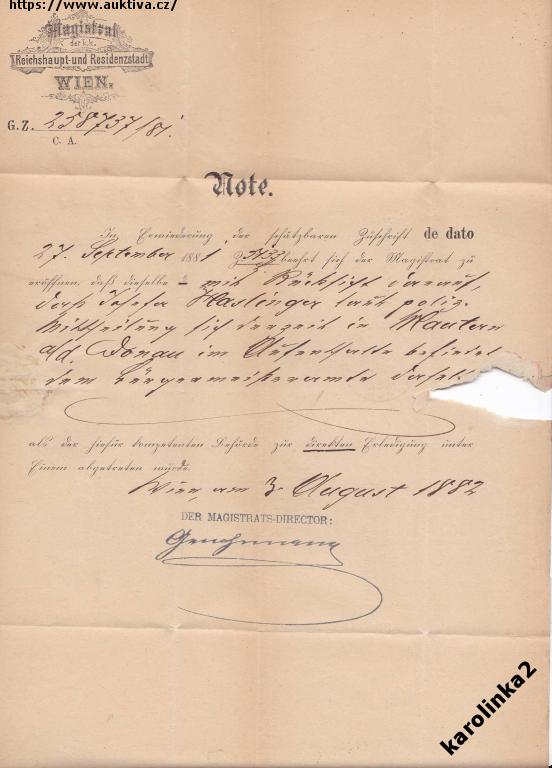 https://www.auktiva.cz/
Magistrat
der k.k.
Reichshaupt-und Residenzstadt
WIEN.
G. Z. 258737/81.
C. A.
Note.
In Erwiederung der schätzbaren Zuschrift de dato
27. September 1881, Z. beehrt sich der Magistrat zu
eröffnen, daß dieselbe mit Rücksicht darauf,
daß Josefa Haslinger laut poliz.
Mittheilung sich derzeit in Mautern
a/d. Donau im Aufenthalte befindet
dem Bürgermeisteramte
als der hiefür kompetenten Behörde zur direkten Erledigung unter
Einem abgetreten wurde.
Wien, am 3. August 1882
DER MAGISTRATS-DIRECTOR:
karolinka2